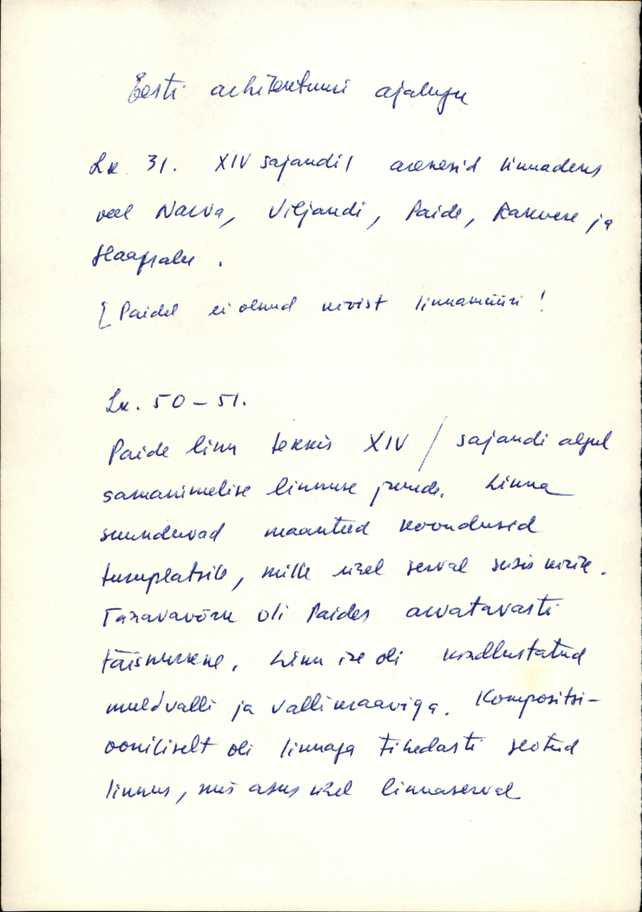 Eesti arhitektuuri ajalugu
Lk 31. XIV sajandil arenesid linnadeks
veel Narva, Viljandi, Paide, Rakvere ja
Haapsalu.
[Paidel ei olnud kivist linnamüüri!
Lk. 50-51.
Paide linn tekkis XIV / sajandi algul
samanimelise linnuse juurde. Linna
suunduvad maanteed koondusid
turuplatsile, mille ühel serval seisis kirik.
Tänavavõrk oli Paides arvatavasti
täisnurkne. Linn ise oli kindlustatud
muldvalli ja vallikraaviga. Kompositsi-
ooniliselt oli linnaga tihedasti seotud
linnus, mis asus ühel linnaserval